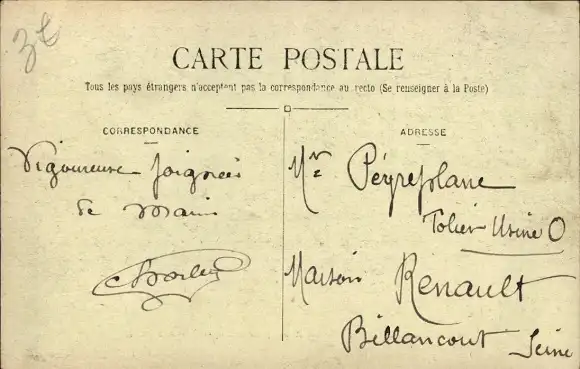 3f
CARTE POSTALE
Tous les pays étrangers n'acceptent pas la correspondance au recto (Se renseigner à la Poste)
CORRESPONDANCE
Vigoureuse poignées
de main
ADRESSE
Mr Peyreplane
Tolier Usine O
Maison Renault
Billancourt Seine